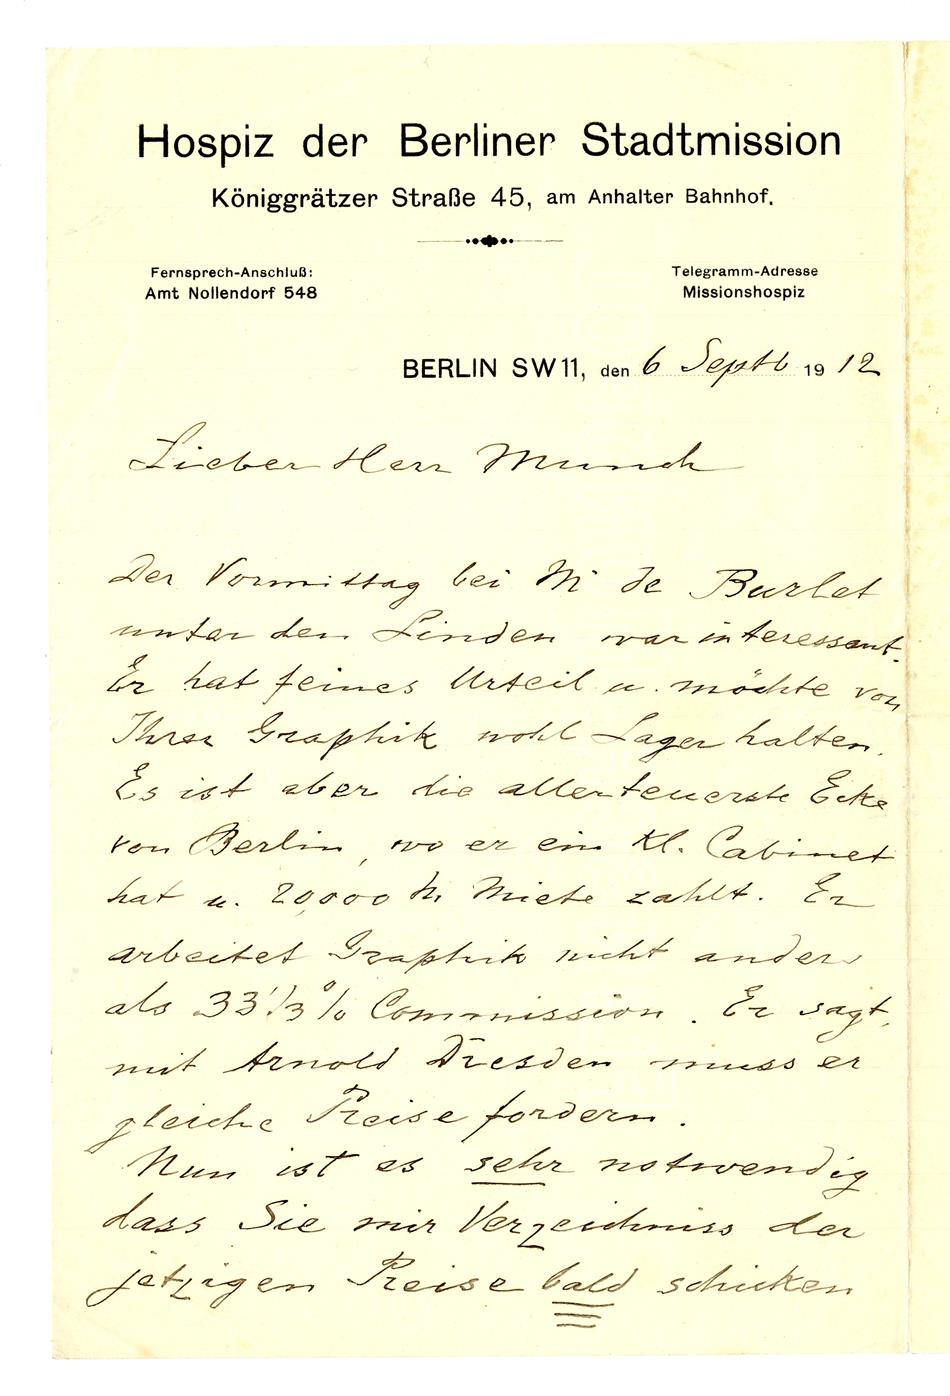 Hospiz der Berliner Stadtmission
Königgrätzer Straße 45, am Anhalter Bahnhof.
Fernsprech-Anschluß:
Amt Nollendorf 548
Telegramm-Adresse
Missionshospiz
BERLIN SW11, den 6 Septb 1912
Lieber Herr Munch
Der Vormittag bei M de Burlet
unter den Linden war interessant.
Er hat feines Urteil u. möchte von
Ihrer Graphik wohl Lager halten.
Es ist aber die allerteuerste Ecke
von Berlin, wo er ein Kl. Cabinet
hat u. 20,000 M Miete zahlt. Er
arbeitet Graphik nicht anders
als 33 1/3 % Commission. Er sagt,
mit Arnold Dresden muss er
gleiche Preise fordern.
Nun ist es sehr notwendig
dass Sie mir Verzeichniss der
jetzigen Preise bald schicken